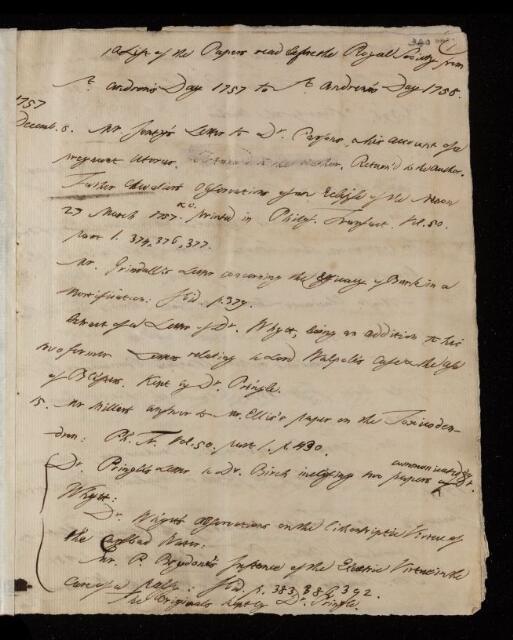 A List of the Papers read before the Royal Society from
St. Andrew's Day 1757 to St. Andrew's Day 1758.
1757
Decemb. 8. Mr. Letter to Dr. Parsons, account of a
pregnant Uterus. Return'd to the Author.
Father Observations of an Eclipse of the Moon
29 March 1757 &c. printed in Philos. Transact. Vol. 50.
part 1. 374, 376, 377.
Mr. Grindall's Letter concerning the Efficacy of Bark in a
Mortification: Ibid. p. 379.
Extract of a Letter of Dr. Whytt, being an addition to his
two former Letters relating to Lord Walpole's Case & the Use
of Blisters. Kept by Dr. Pringle.
15. Mr Miller's answer to Mr. Ellis's paper on the Toxicoden-
dron: Ph. Tr. Vol. 50. part 1. p. 430.
Dr. Pringle's Letter to Dr. Birch inclosing two papers communicated by Dr.
Whytt:
Dr. Whytt's Observations on the Lithontriptic Virtue of
the Carlsbad Water.
Mr. P. Brydone's Instance of the Electric Virtue in the
Cure of a Palsy: Ibid. p. 383, 386, 392.
The Originals kept by Dr. Pringle.